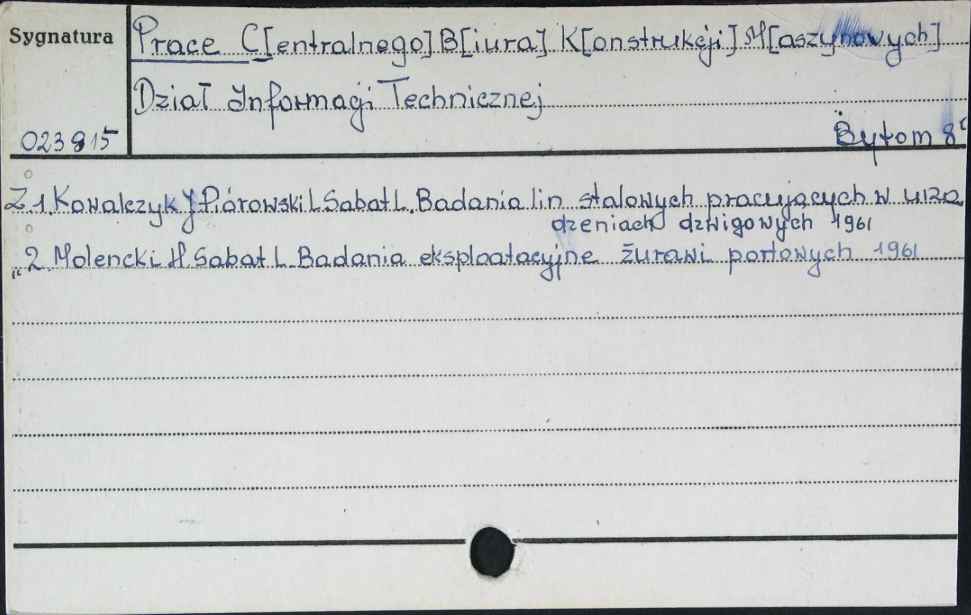 Sygnatura
Prace C[entralnego] B[iura] K[onstrukcji] M[aszynowych]
Dział Informacji Technicznej
023815
Bytom 8°
Z 1. Kowalczyk J Piórowski L Sabat L. Badania lin stalowych pracujących w urzą
dzeniach dzwigowych 1961
„ 2. Molencki H. Sabat L. Badania eksploatacyjne żurawi portowych 1961